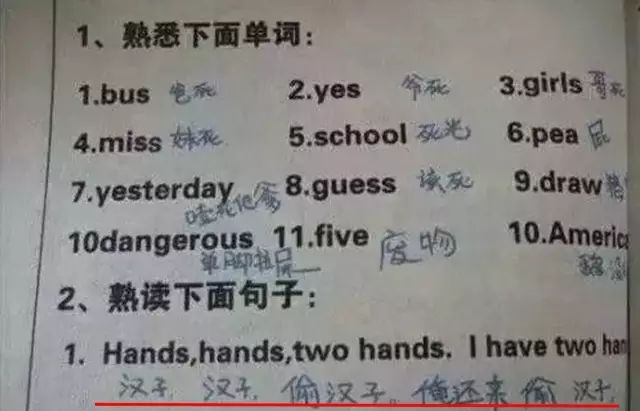 1、熟悉下面单词:
1.bus 包死 2.yes 爷死 3.girls 哥死
4.miss 妹死 5.school 死光 6.pea 屁
7.yesterday 8.guess 该死 9.draw
噎死他爹
10dangerous 11.five 废物 10.Americ
单脚拉屎
2、熟读下面句子:
1. Hands,hands,two hands. I have two han
汉子 汉子, 偷汉子。俺还来偷 汉子,